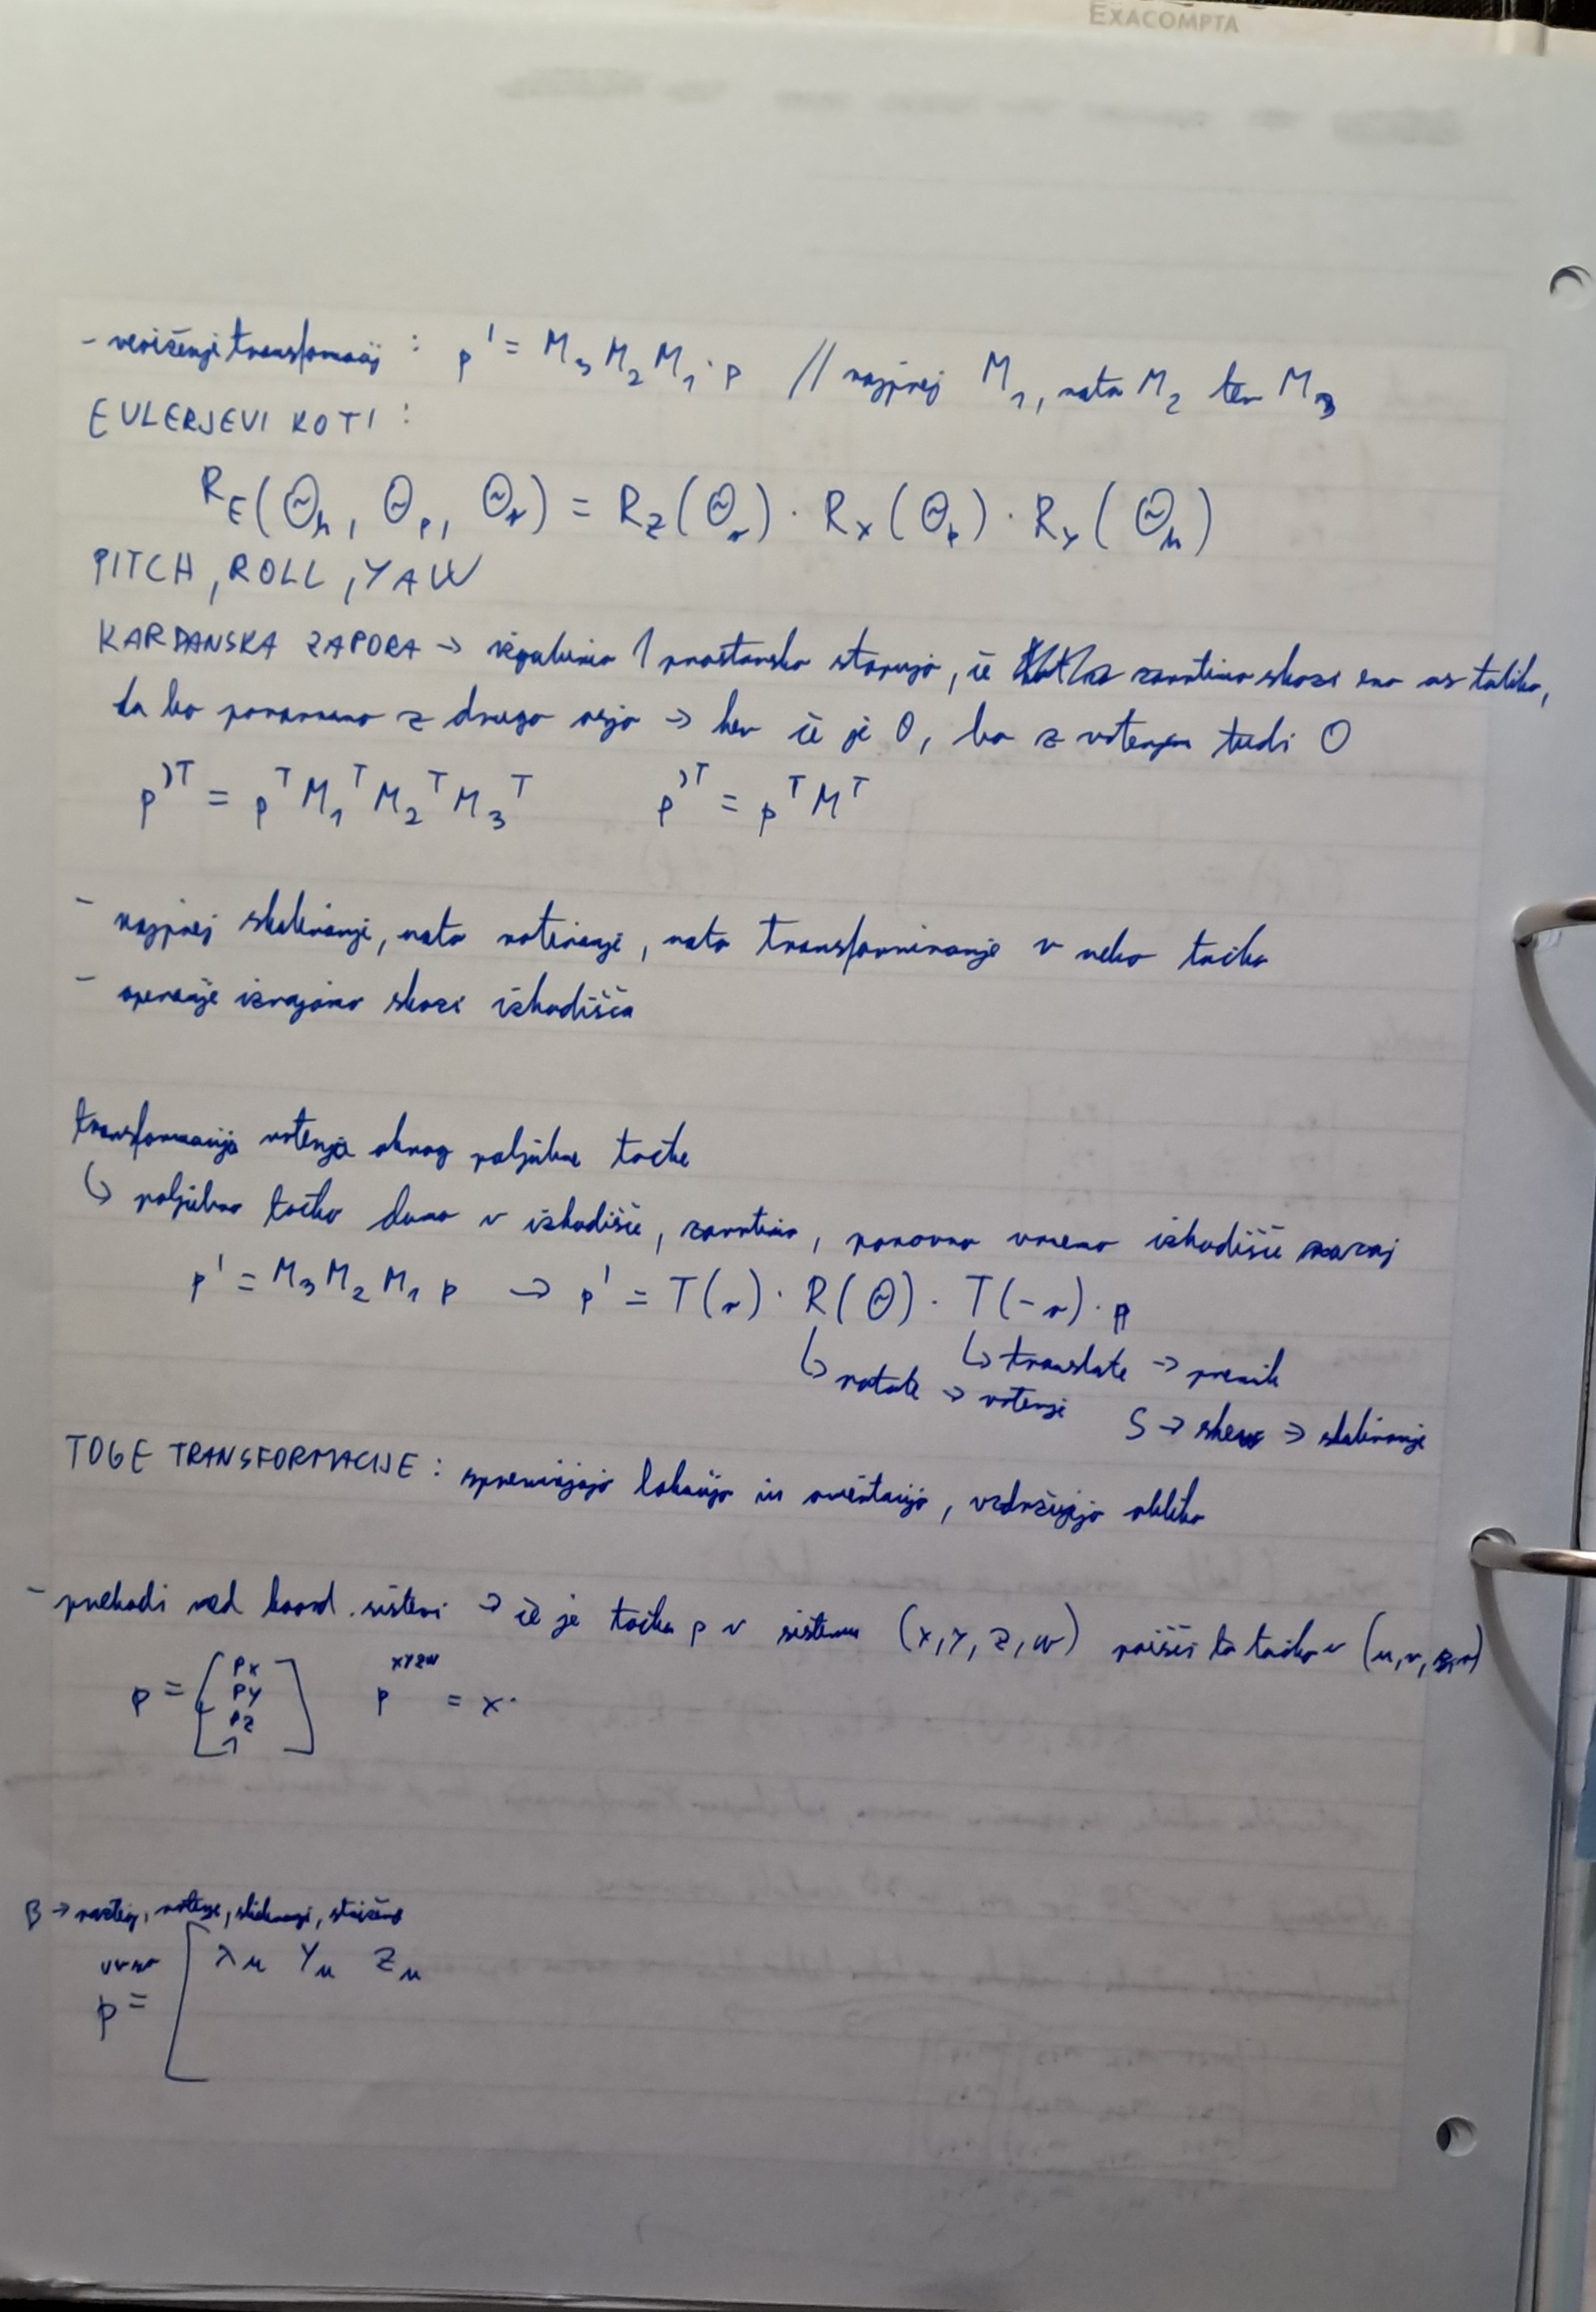 EXACOMPTA
- veriženje transformacij : p' = M₃ M₂ M₁ · p // najprej M₁, nato M₂ ter M₃
EULERJEVI KOTI :
R_E(Θₕ, Θₚ, Θᵣ) = R_Z(Θᵣ) · R_X(Θₚ) · R_Y(Θₕ)
PITCH, ROLL, YAW
KARDANSKA ZAPORA → izgubimo 1 prostorsko stopnjo, če zavrtimo skozi eno os toliko,
da bo poravnano z drugo osjo → ker če je 0, bo z vrtenjem tudi 0
p'ᵀ = pᵀ M₁ᵀ M₂ᵀ M₃ᵀ p'ᵀ = pᵀ Mᵀ
- najprej skaliranje, nato rotiranje, nato transformiranje v neko točko
- operacije izvajamo skozi izhodišča
transformacija vrtenja okrog poljubne točke
↳ poljubno točko damo v izhodišče, zavrtimo, ponovno vrnemo izhodišče nazaj
p' = M₃ M₂ M₁ p → p' = T(r) · R(Θ) · T(-r) · p
↳ translate → premik
↳ rotate → vrtenje S → skew → skaliranje
TOGE TRANSFORMACIJE : spreminjajo lokacijo in orientacijo, vzdržujejo obliko
- prehodi med koord. sistemi → če je točka p v sistemu (x, y, z, w) poišči to točko v (u, v,
p = [px py pz 1] p^xyzw = x·
B → razteg, vrtenje, skaliranje, striženje
p = [ Xu Yu Zu